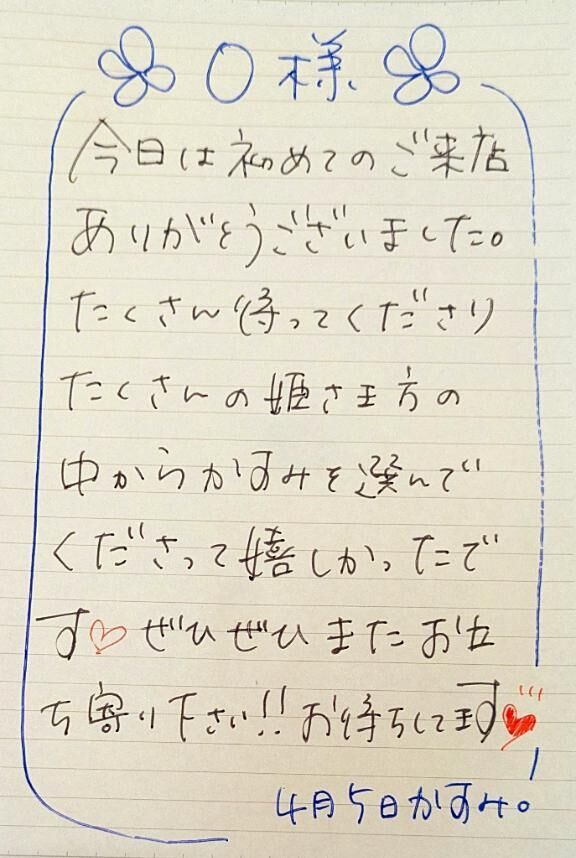 〇様
今日は初めてのご来店
ありがとうございました。
たくさん待ってくださり
たくさんの姫さま方の
中からかすみを選んで
くださって嬉しかったで
す♡ぜひぜひまたお立
ち寄り下さい!!お待ちしてます♥
4月5日かすみ。